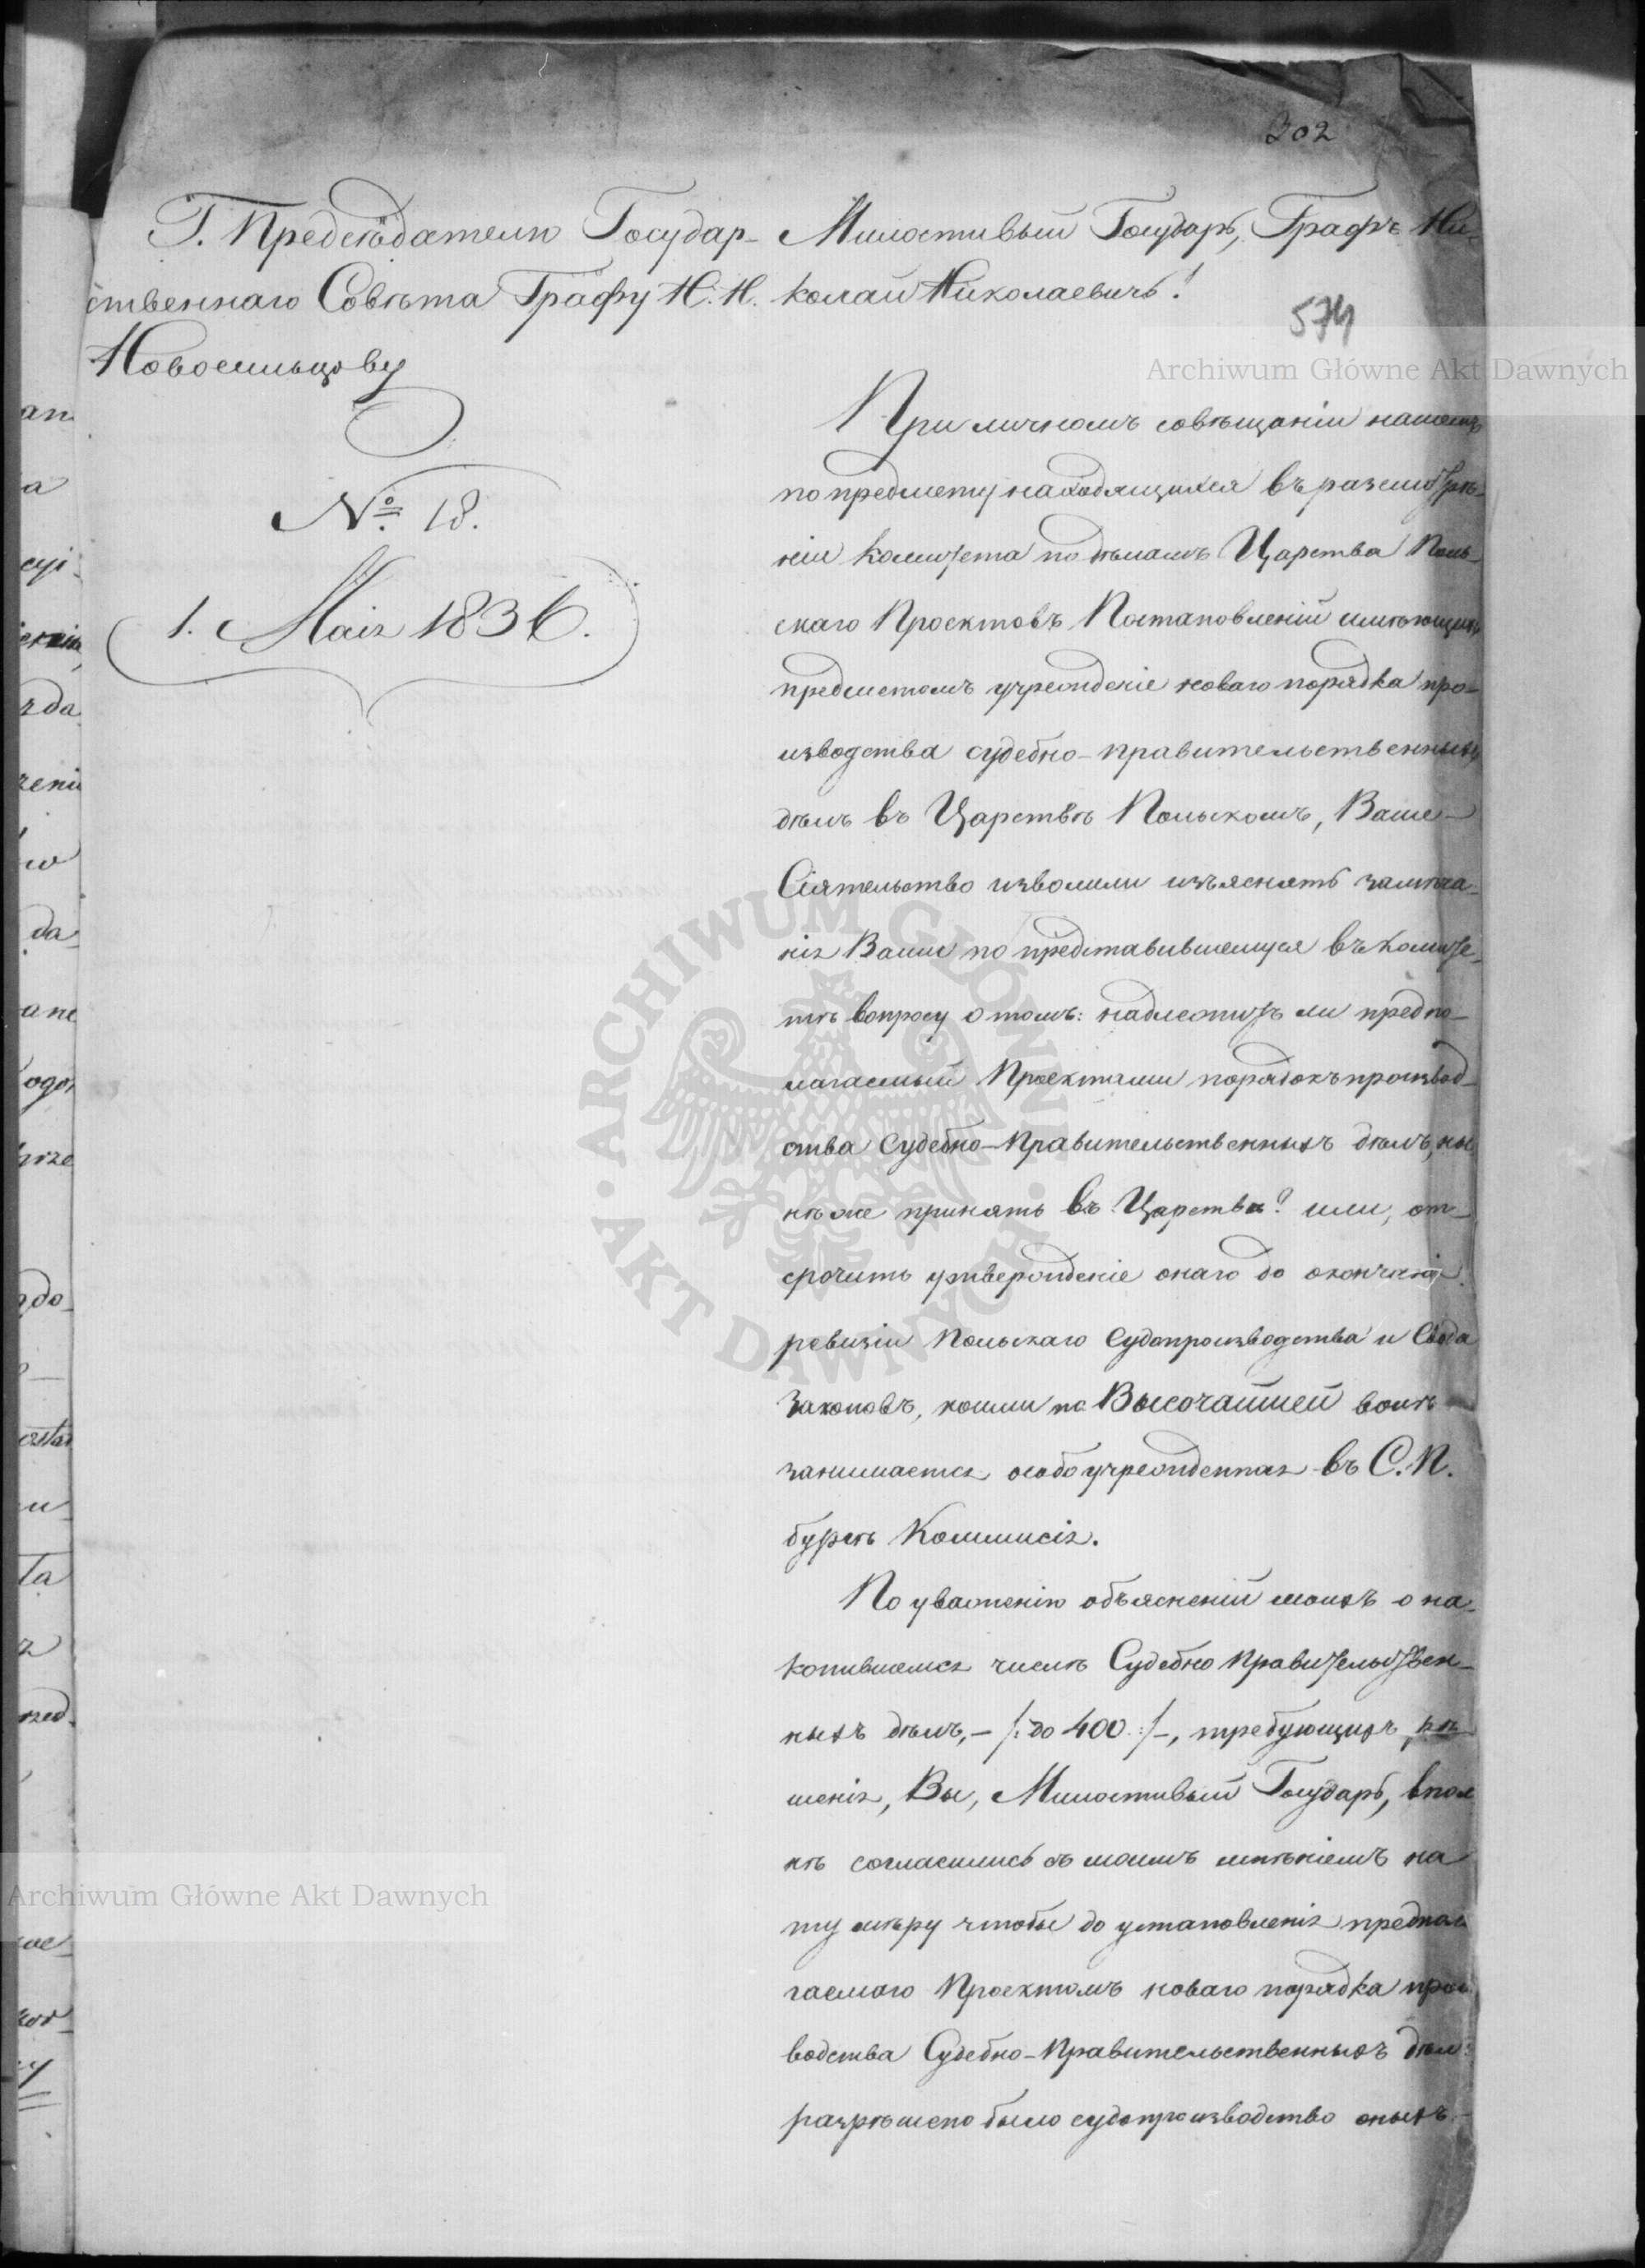 302
Г. Предсѣдателю Государ-
ственнаго Совѣта Графу Н. Н.
Новосильцову
№ 18.
1. Маія 1836.
Милостивый Государь, Графъ Ни-
колай Николаевичь!
574
При личномъ совѣщаніи нашемъ
по предмету находящихся въ разсмотрѣ-
ніи Комитета по дѣламъ Царства Поль-
скаго Проектовъ Постановленій имѣющихъ
предметомъ учрежденіе новаго порядка про-
изводства судебно-правительственныхъ
дѣлъ въ Царствѣ Польскомъ, Ваше
Сіятельство изволили изъяснять замѣча-
нія Ваши по представившемуся въ Комите-
тѣ вопросу о томъ: надлежитъ ли предпо-
лагаемый Проектами порядокъ производ-
ства Судебно-Правительственныхъ дѣлъ, ны-
нѣ же принять въ Царства? или, от-
срочить утвержденіе онаго до окончанія
ревизіи Польскаго Судопроизводства и Свода
Законовъ, коими по Высочайшей волѣ
занимается особо учрежденная въ С. П.
бургѣ Коммисія.
По уваженію объясненій моихъ о на-
копившемся числѣ Судебно Правительствен-
ныхъ дѣлъ, - /: до 400 :/ -, требующихъ рѣ-
шенія, Вы, Милостивый Государь, впол
нѣ согласились съ моимъ мнѣніемъ на
ту мѣру чтобы до установленія предпола
гаемаго Проектомъ новаго порядка произ
водства Судебно-Правительственныхъ дѣлъ
разрѣшено было судопроизводство оныхъ
an
a
cyi
rda
zeniu
w
da
ane
ogo
rze
do
u
ta
z
rzed
oe
y
Archiwum Główne Akt Dawnych
ARCHIWUM GŁÓWNE AKT DAWNYCH
Archiwum Główne Akt Dawnych